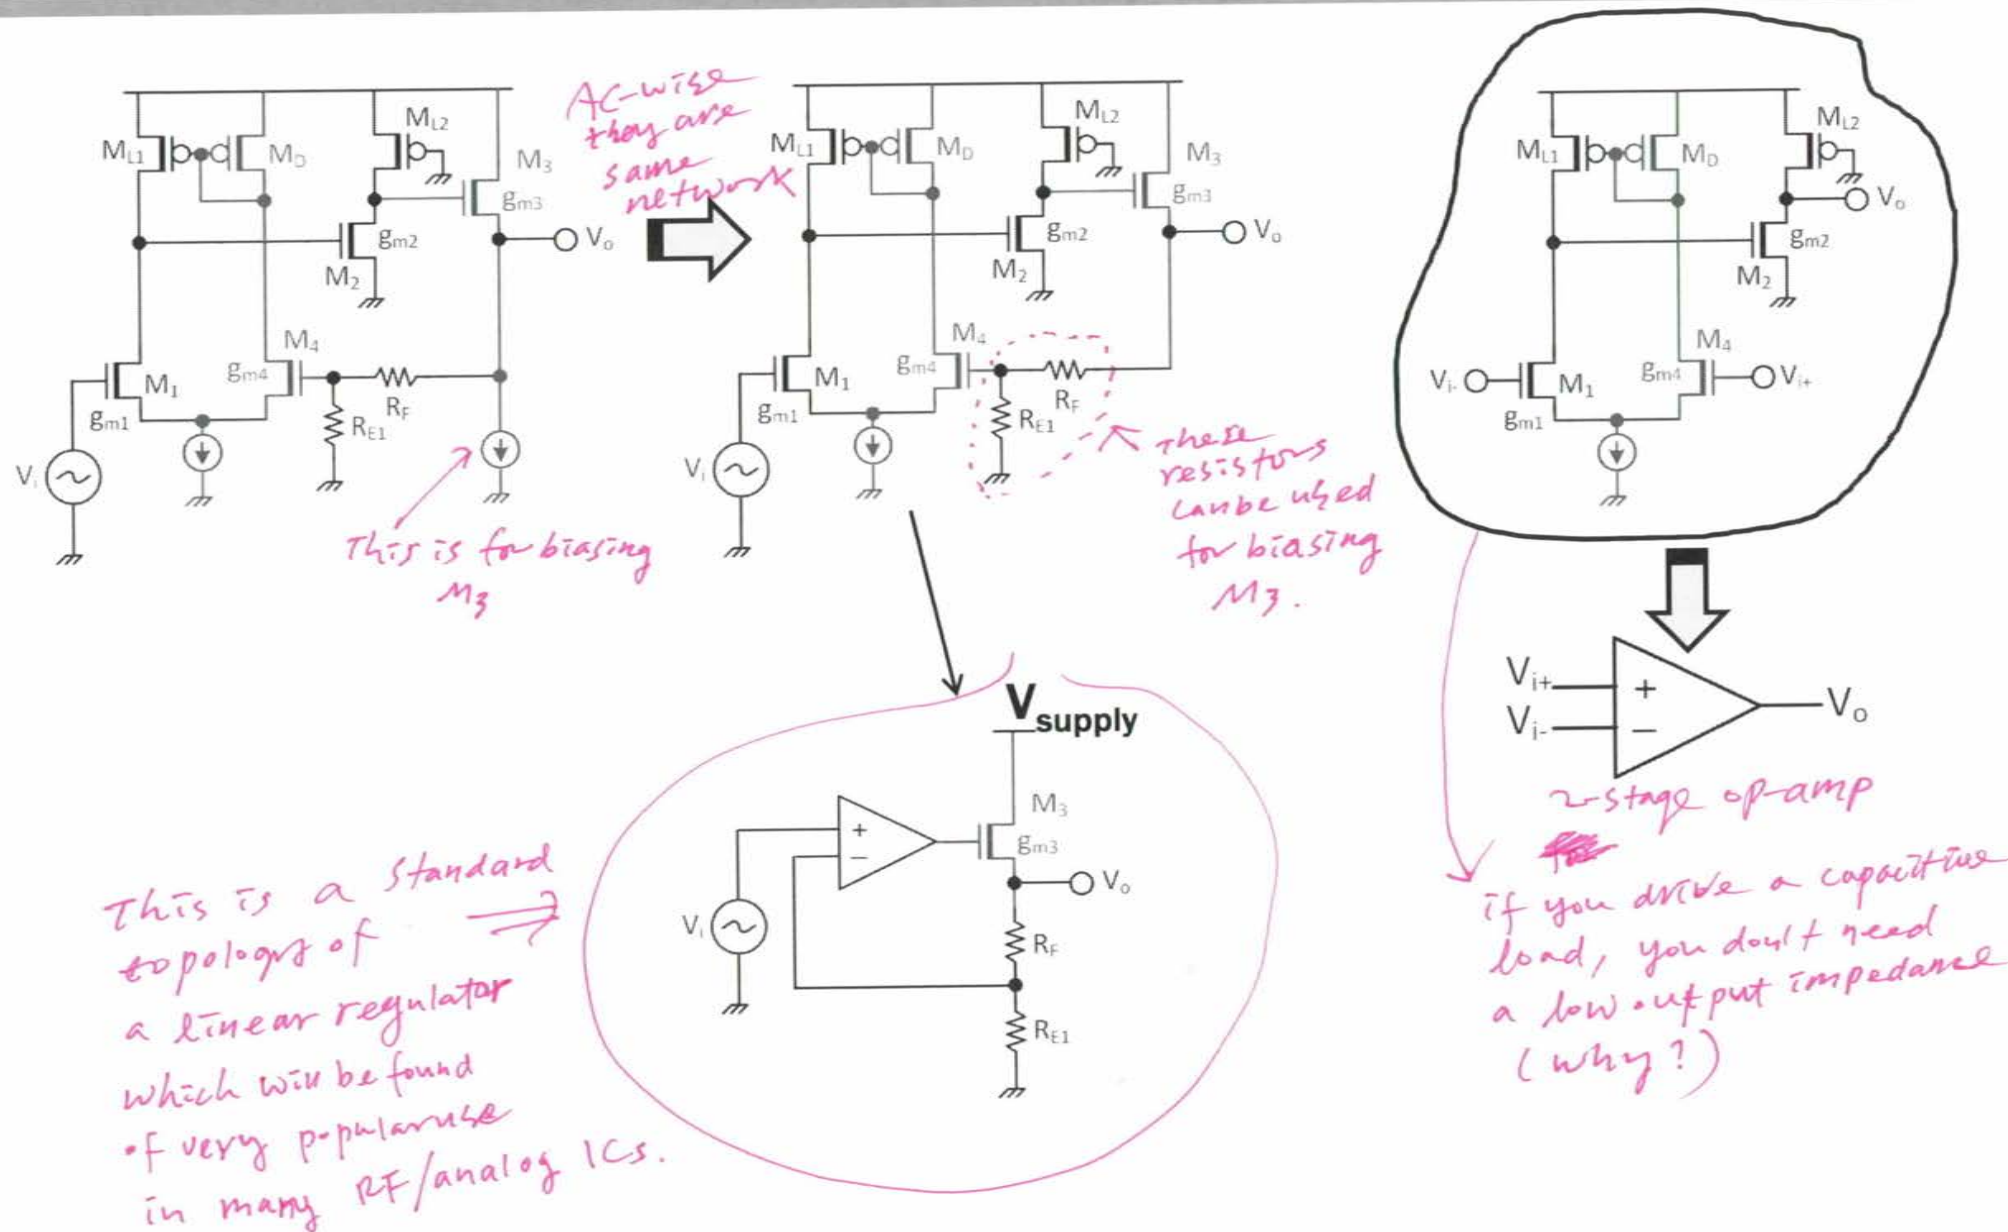 M_L1
M_D
M_L2
M_3
g_m3
V_o
g_m2
M_2
M_4
g_m4
M_1
g_m1
R_F
R_E1
V_i
This is for biasing
M3
AC-wise
they are
same
network
M_L1
M_D
M_L2
M_3
g_m3
V_o
g_m2
M_2
M_4
g_m4
M_1
g_m1
R_F
R_E1
V_i
these
resistors
can be used
for biasing
M3.
M_L1
M_D
M_L2
V_o
g_m2
M_2
M_4
g_m4
V_i+
V_i-
M_1
g_m1
V_i+
V_i-
+
−
V_o
2-stage op-amp
if you drive a capacitive
load, you don't need
a low output impedance
(why?)
V_supply
M_3
g_m3
+
−
V_o
V_i
R_F
R_E1
This is a standard
topology of
a linear regulator
which will be found
of very popular use
in many RF/analog ICs.